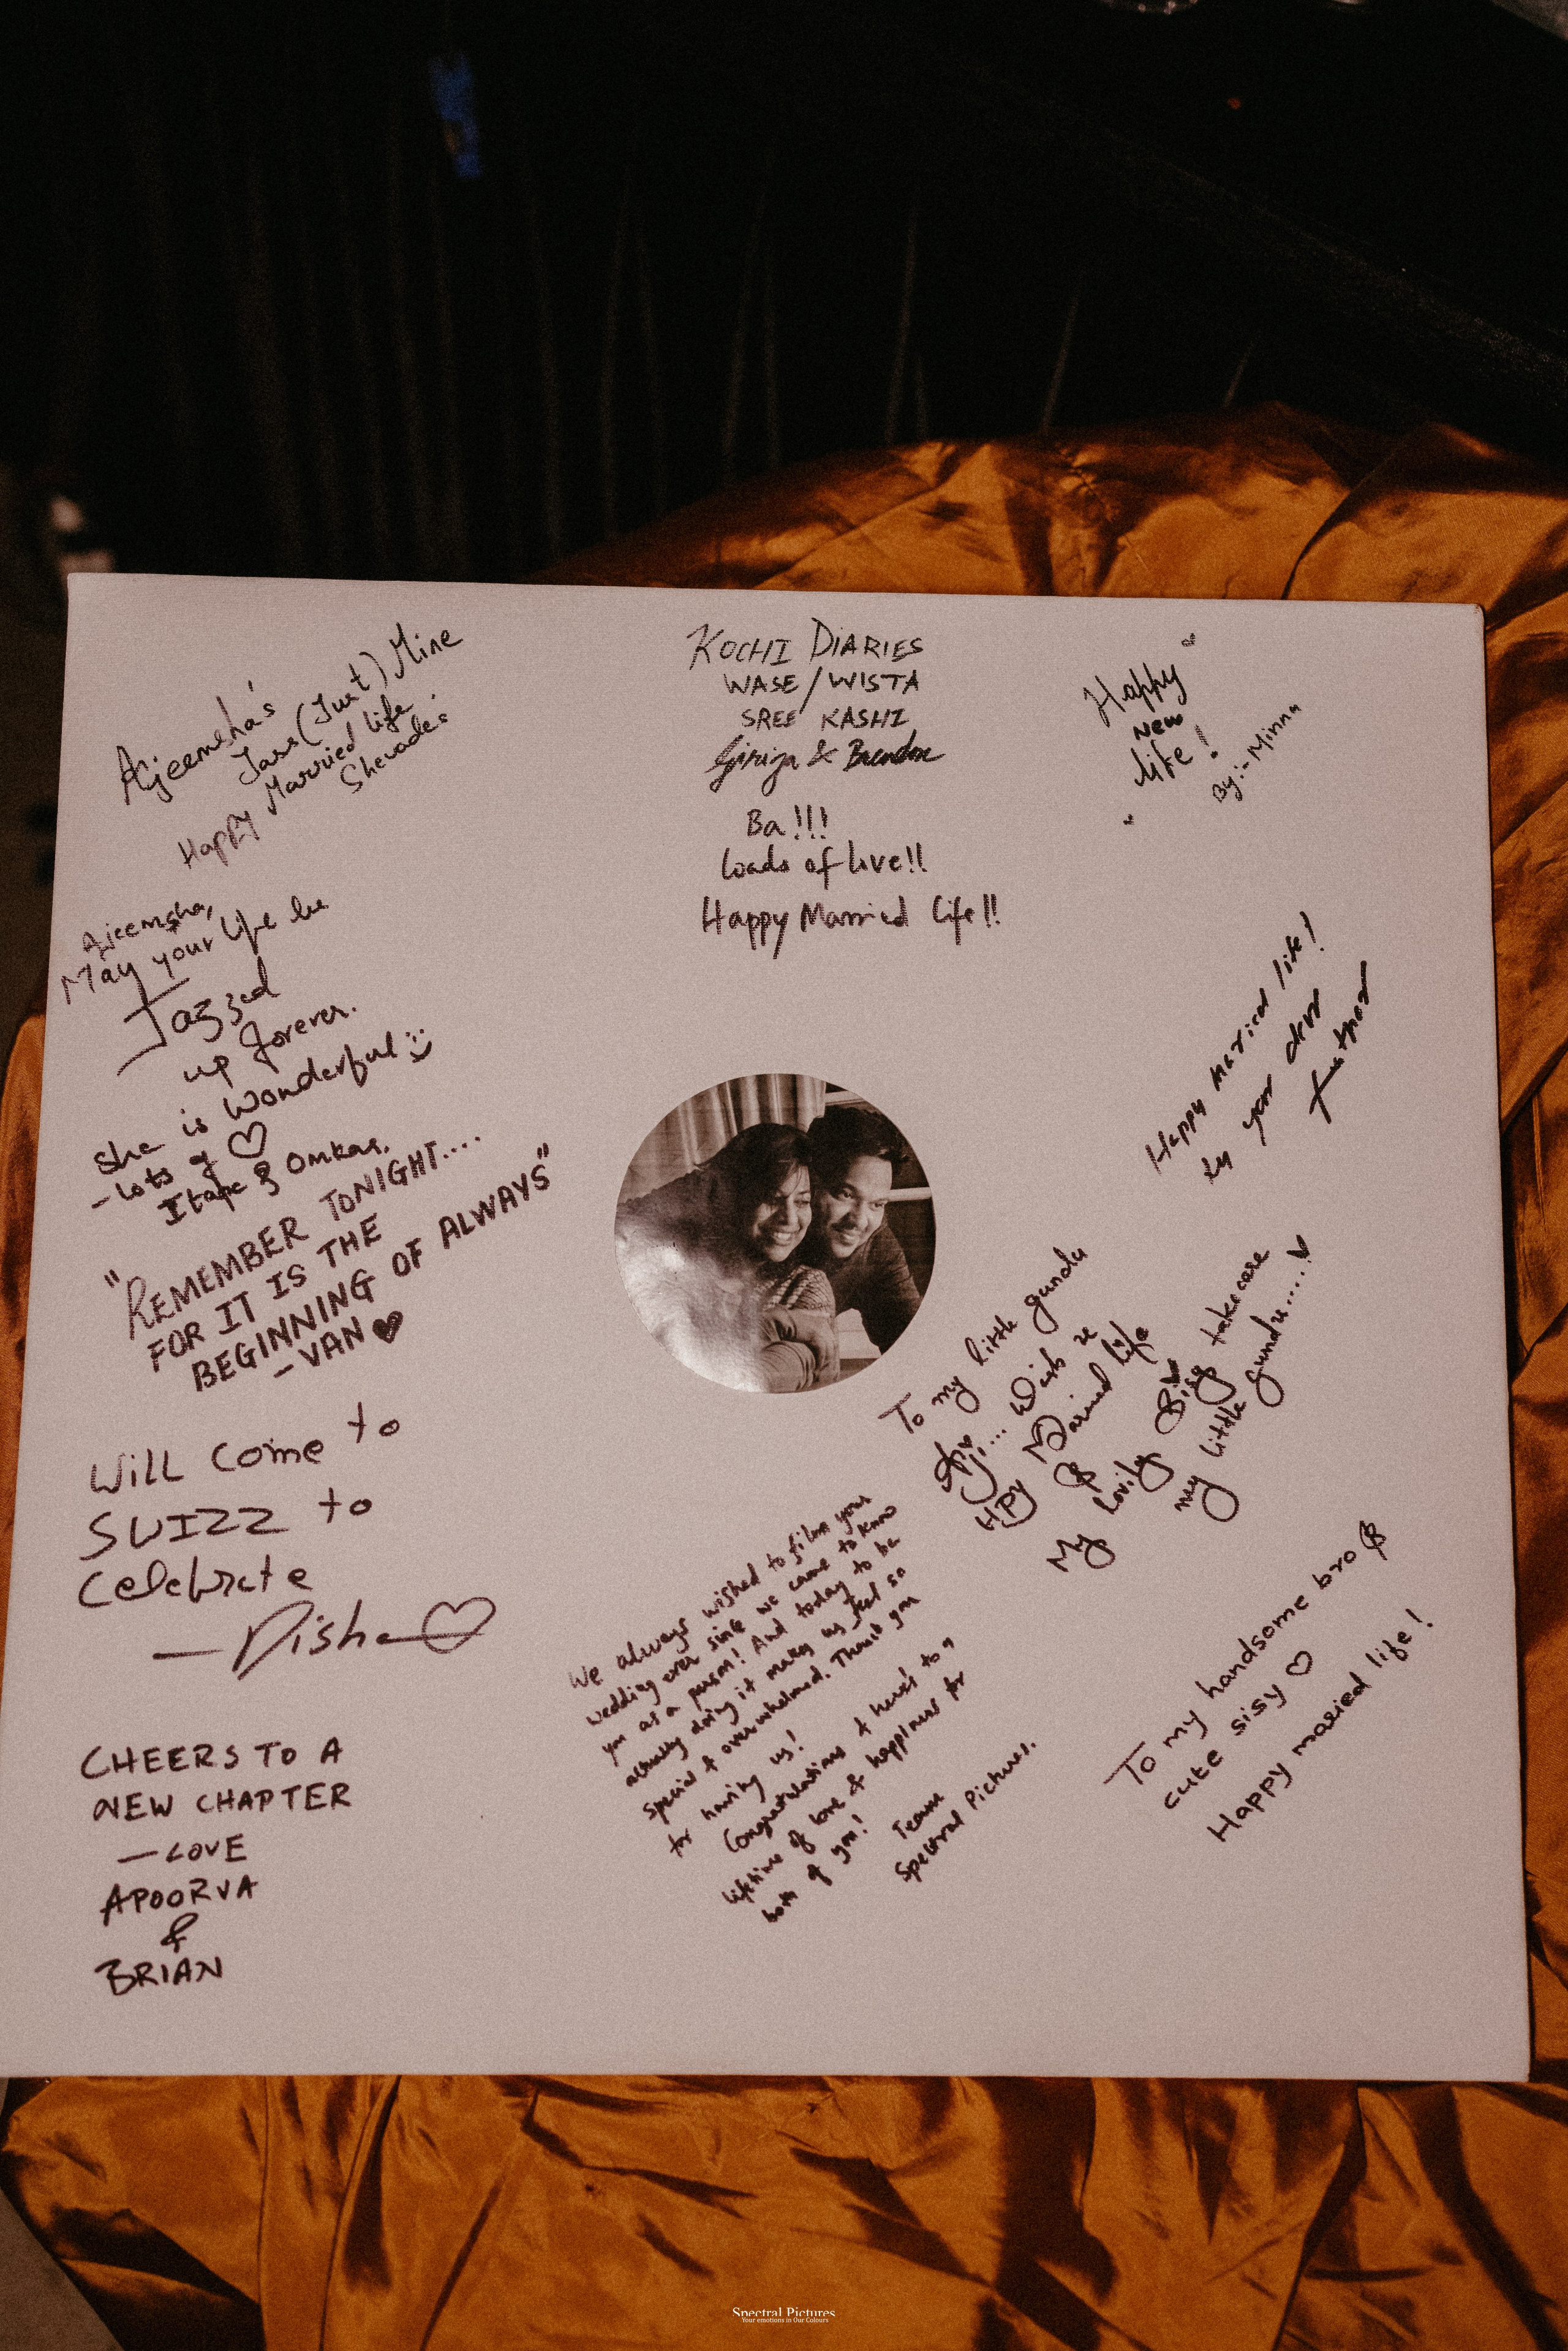 Ajeemsha's
Jass (Just) Mine
Happy Married life
Ajeemsha,
May your life be
Jazzed
up forever.
She is Wonderful
- Lots of ♡
& Omkar.
"REMEMBER TONIGHT....
FOR IT IS THE
BEGINNING OF ALWAYS"
- VAN ♥
WILL Come to
SWIZZ to
Celebrate
— Disha ♡
CHEERS TO A
NEW CHAPTER
— LOVE
APOORVA
&
BRIAN
KOCHI DIARIES
WASE/WISTA
SREE KASHI
Girija & Brendon
Ba!!!
Loads of love!!
Happy Married Life!!
We always wished to film your
wedding ever since we came to know
you as a person! And today to be
actually doing it makes us feel so
special & overwhelmed. Thank you
for having us!
Congratulations & here's to a
lifetime of love & happiness for
both of you!
Team
Spectral Pictures.
Happy
New
life!
By:- Minnu
Happy Married life!
by your dear
To my little gundu
Aji... Wish u
HPY Married life
My lovely Bigg take care
my little gundu.....♥
To my handsome bro &
cute sisy ♡
Happy maried life!
Spectral Pictures
Your emotions in Our Colours